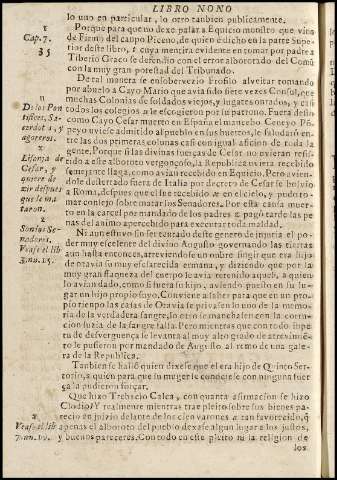 LIBRO NONO
lo uno en particular, lo otro tanbien publicamente.
1
Cap. 7.
35
Porque para que no dexe passar a Equicio monstro que vino
de Firmo del campo Piceno, de quien é dicho en la parte Supe-
rior deste libro, i cuya mentira evidente en tomar por padre a
Tiberio Graco se defendio con el error alborotado del Comũ
con la muy gran potestad del Tribunado.
De tal manera se ensobervecio
alveitar tomando
por abuelo a Cayo Mario que avia sido siete vezes Consul, que
muchas Colonias de soldados viejos, y lugares onrados, y casi
todos los colegios a le escogieron por su patrono. Fuera desto
como Cayo Cesar muerto en España el mancebo Cneyo Põ-
peyo uviese admitido al pueblo en sus huertos, le saludaron en-
tre las dos primeras colunas casi con igual aficion de toda la
gente. Porque si las divinas fuerças de Cesar no uvieran resis-
tido a este alboroto vergonçoso, la Republica uviera recebido
semejante llaga, como avian recebido en Equicio. Pero avien-
dole desterrado fuera de Italia por decreto de Cesar se bolvio
a Roma, despues que el fue recebido en el cielo, y pudo to-
mar consejo sobre matar los Senadores. Por esta causa muer-
to en la carcel por mandado de los padres pagó tarde las pe-
nas del animo apercebido para executar toda maldad.
n
De los Pon
tifices, Sa-
cerdotes, y
agoreros.
x
Lisonja de
Cesar, y
quiere de-
zir despues
que le ma
taron.
z
Son los Se-
nadores.
Vease el lib
3. nu. 15.
Ni aun estuvo sin ser tentado deste genero de injuria el po-
der muy escelente del divino Augusto governando las tierras
aun hasta entonces, atreviendose un onbre fingir que era hijo
de su muy esclarecida ermana, y diziendo que por la
muy gran flaqueza del cuerpo le avia
a quien
lo avian dado, como si fuera su hijo, aviendo puesto en su lu-
gar un hijo propio suyo. Conviene a saber para que en un pro-
prio tienpo las casas de Otavia se privasen lo uno de la memo-
ria de la verdadera sangre, lo otro se manchasen con la corru-
cion suzia de la sangre falsa. Pero mientras que con todo inpe-
tu de desverguença se levanta al muy alto grado de atrevimiẽ-
to le pusieron por mandado de Augusto al remo de una gale-
ra de la Republica.
Tanbien se halló quien dixese que el era hijo de Quinto Ser-
torio, a quien para que su muger le conociese con ninguna fuer
ça la pudieron forçar.
Que hizo Trebacio Calca, con quanta afirmacion se hizo
Clodio? Y realmente mientras trae pleito sobre sus bienes pa-
recio en juizio delante de los cien varones a tan favorecido, q̃
x
Vease el lib
7. nu. 10.
apenas el alboroto del pueblo dexase algun lugar a los justos,
y buenos pareceres. Con todo en este pleito ni la religion de
los